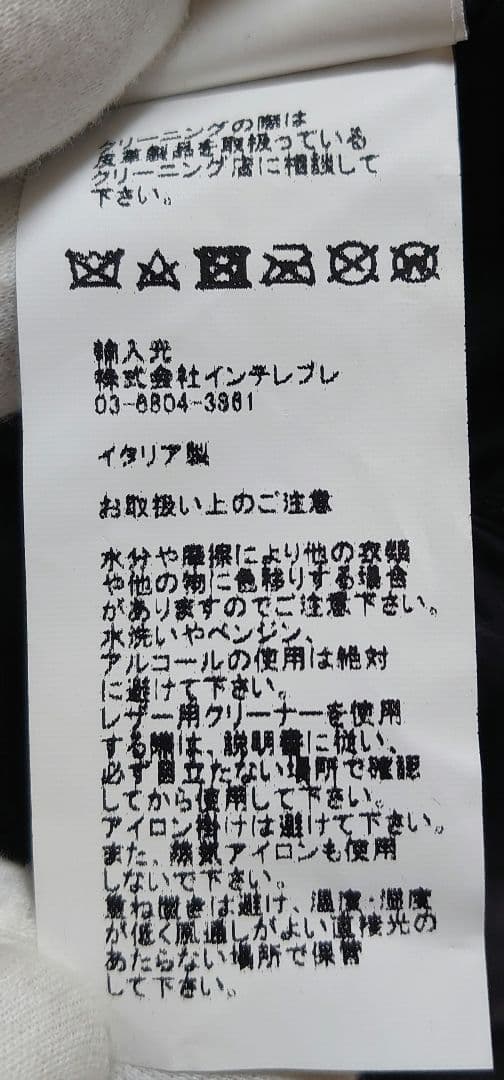 クリーニングの際は
皮革製品を取扱っている
クリーニング店に相談して
下さい。
輸入元
株式会社インテレプレ
03-6804-3861
イタリア製
お取扱い上のご注意
水分や摩擦により他の衣類
や他の物に色移りする場合
がありますのでご注意下さい。
水洗いやベンジン、
アルコールの使用は絶対
に避けて下さい。
レザー用クリーナーを使用
する際は、説明書に従い、
必ず目立たない場所で確認
してから使用して下さい。
アイロン掛けは避けて下さい。
また、蒸気アイロンも使用
しないで下さい。
重ね置きは避け、温度・湿度
が低く風通しがよい直接光の
あたらない場所で保管
して下さい。